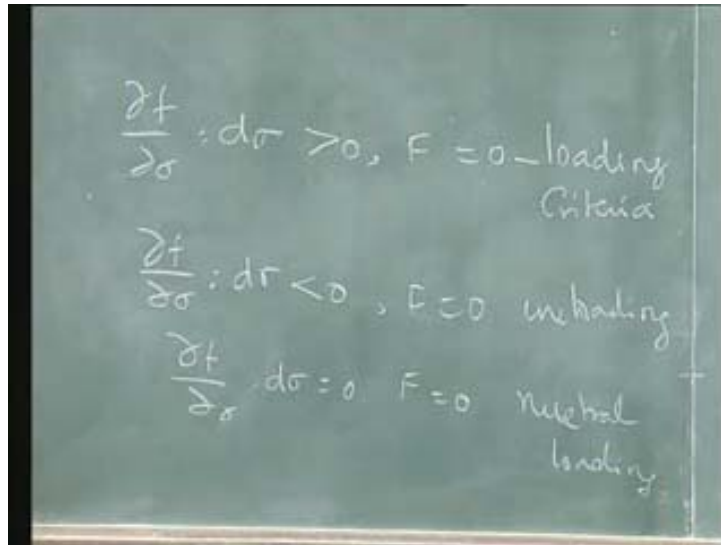 ∂f/∂σ : dσ > 0, F = 0 – loading
Criteria
∂f/∂σ : dσ < 0, F = 0 unloading
∂f/∂σ dσ = 0 F = 0 Nuetral
loading